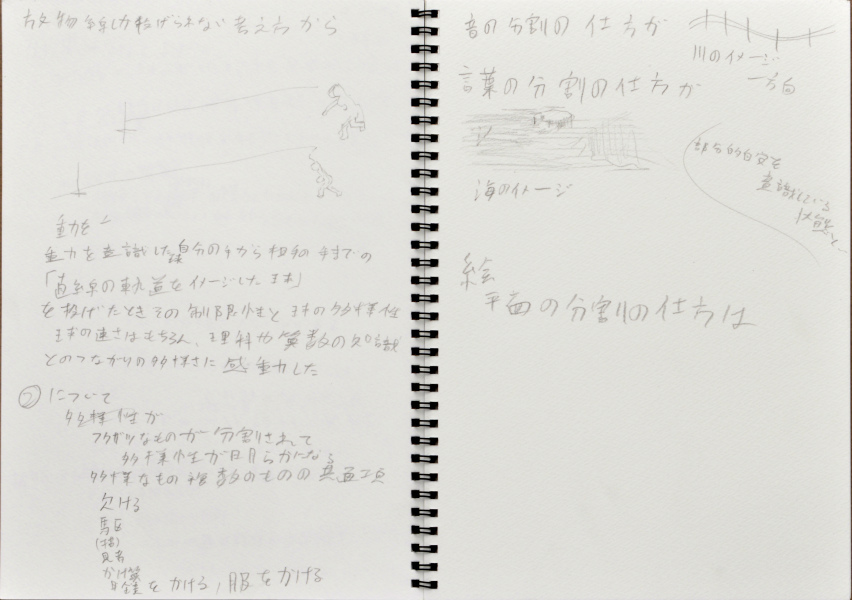 放物線しか投げられない考え方から
重力を
重力を意識した自分の手から相手の手までの
「直線の軌道をイメージした球」
を投げたときその制限性と球の多様性
球の速さはもちろん、理科や算数の知識
とのつながりの多様さに感動した
②について
多様性が
フクザツなものが分割されて
多様性が明らかになる
多様なもの複数のものの共通点
欠ける
駆
かけ算
をかける,服をかける
音の分割の仕方が
川のイメージ
一方向
言葉の分割の仕方が
海のイメージ
意識している
状態と…
絵
平面の分割の仕方は